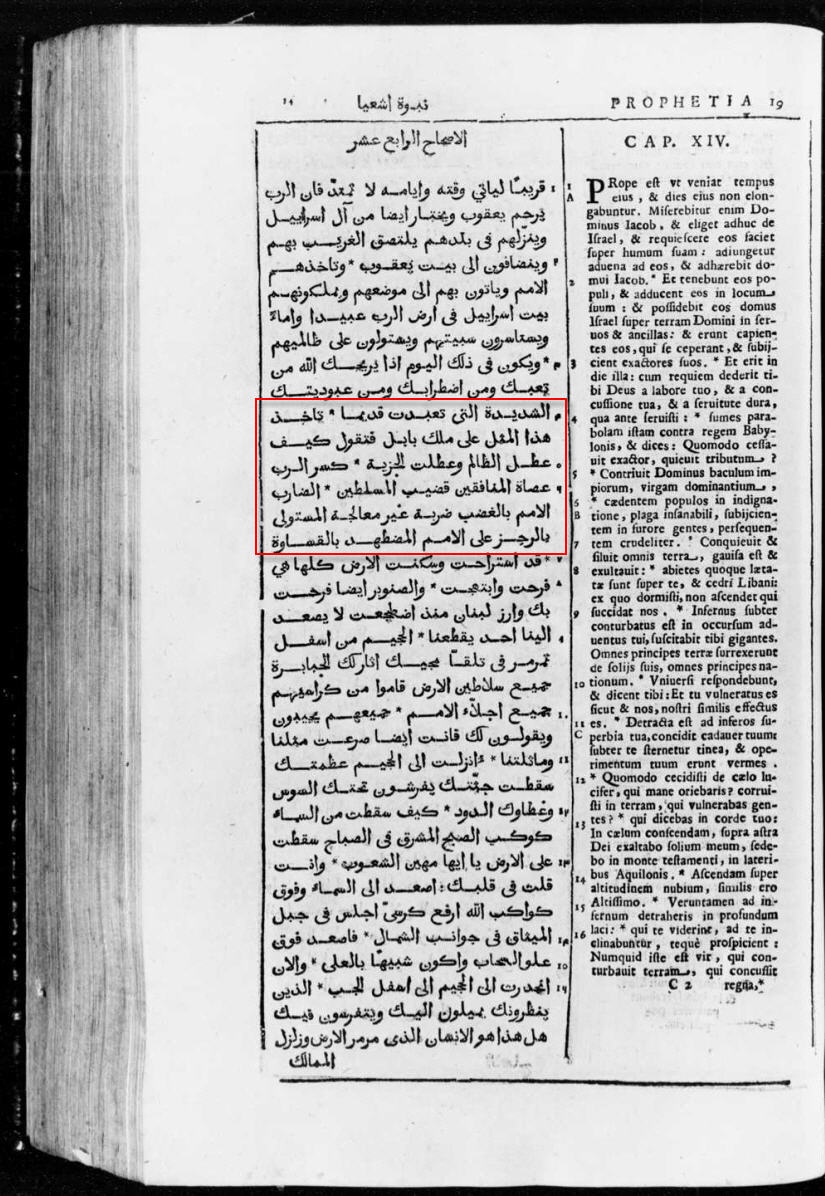 ١٩ نبوة اشعيا
PROPHETIA 19
الاصحاح الرابع عشر
قريبًا لياتي وقته وايامه لا تمتدّ فان الرب
يرحم يعقوب ويختار ايضا من آل اسراييل
وينزّلهم في بلدهم يلتصق الغريب بهم
وينضافون الى بيت يعقوب * وتاخذهم
الامم وياتون بهم الى موضعهم ويملكونهم
بيت اسراييل في ارض الرب عبيدا واماءً
ويستاسرون سبيتهم ويستولون على ظالميهم
* ويكون في ذلك اليوم اذا يريحك الله من
تعبك ومن اضطرابك ومن عبوديتك
الشديدة التي تعبدت قديما * تاخذ
هذا المثل على ملك بابل فتقول كيف
عطل الظالم وعطلت الجزية * كسر الرب
عصاة المنافقين قضيب المسلطين * الضارب
الامم بالغضب ضربة غير معالجة المستولى
بالرجز على الامم المضطهد بالقساوة
* قد استراحت وسكنت الارض كلها هي
فرحت وابتهجت * والصنوبر ايضا فرحت
بك وارز لبنان منذ اضطجعت لا يصعد
الينا احد يقطعنا * الجحيم من اسفل
تمرمر في تلقاء مجيك اثار لك الجبابرة
جميع سلاطين الارض قاموا من كراسيهم
جميع اجلّاء الامم * جميعهم يجيبون
ويقولون لك فانت ايضا صرعت مثلنا
وماثلتنا * انزلت الى الجحيم عظمتك
سقطت جثّتك يفرشون تحتك السوس
وغطاوك الدود * كيف سقطت من السماء
كوكب الصبح المشرق في الصباح سقطت
على الارض يا ايها مهين الشعوب * وانت
قلت في قلبك : اصعد الى السماء وفوق
كواكب الله ارفع كرسيّ اجلس في جبل
الميثاق في جوانب الشمال * فاصعد فوق
علو السحاب واكون شبيهًا بالعلى * والان
انحدرت الى الجحيم الى اسفل الجب * الذين
ينظرونك يميلون اليك ويتفرسون فيك
هل هذا هو الانسان الذى مرمر الارض وزلزل
الممالك
CAP. XIV.
1 PRope est vt veniat tempus
A eius, & dies eius non elon-
gabuntur. Miserebitur enim Do-
minus Iacob, & eliget adhuc de
Israel, & requiescere eos faciet
super humum suam: adiungetur
aduena ad eos, & adhærebit do-
2 mui Iacob. * Et tenebunt eos po-
puli, & adducent eos in locum
suum: & possidebit eos domus
Israel super terram Domini in ser-
uos & ancillas: & erunt capien-
tes eos, qui se ceperant, & subij-
3 cient exactores suos. * Et erit in
die illa: cum requiem dederit ti-
bi Deus a labore tuo, & a con-
cussione tua, & a seruitute dura,
4 qua ante seruisti: * sumes para-
bolam istam contra regem Baby-
lonis, & dices: Quomodo cessa-
uit exactor, quieuit tributum?
5 * Contriuit Dominus baculum im-
piorum, virgam dominantium,
6 * cædentem populos in indigna-
B tione, plaga insanabili, subijcien-
tem in furore gentes, persequen-
7 tem crudeliter. * Conquieuit &
siluit omnis terra, gauisa est &
8 exultauit: * abietes quoque læta-
tæ sunt super te, & cedri Libani:
ex quo dormisti, non ascendet qui
9 succidat nos. * Infernus subter
conturbatus est in occursum ad-
uentus tui, suscitabit tibi gigantes.
Omnes principes terræ surrexerunt
de solijs suis, omnes principes na-
10 tionum. * Vniuersi respondebunt,
& dicent tibi: Et tu vulneratus es
sicut & nos, nostri similis effectus
11 es. * Detracta est ad inferos su-
C perbia tua, concidit cadauer tuum:
subter te sternetur tinea, & ope-
rimentum tuum erunt vermes.
12 * Quomodo cecidisti de cælo lu-
cifer, qui mane oriebaris? corrui-
sti in terram, qui vulnerabas gen-
13 tes? * qui dicebas in corde tuo:
In cælum conscendam, supra astra
Dei exaltabo solium meum, sede-
bo in monte testamenti, in lateri-
14 bus Aquilonis. * Ascendam super
altitudinem nubium, similis ero
15 Altissimo. * Veruntamen ad in-
fernum detraheris in profundum
16 laci: * qui te viderint, ad te in-
clinabuntur, tequè prospicient:
Numquid iste est vir, qui con-
turbauit terram, qui concussit
C 2 regna,*